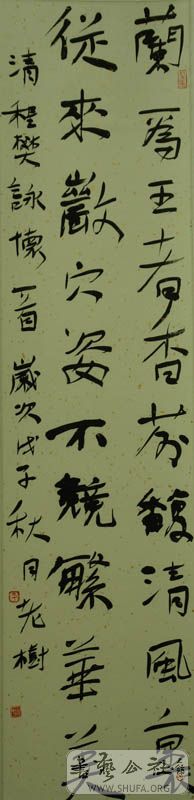 蘭為王者香芬馥清風裏
從來巖穴姿不競繁華美
清程樊詠懷一首 歲次戊子秋月老樹
書藝公社
WWW.SHUFA.ORG